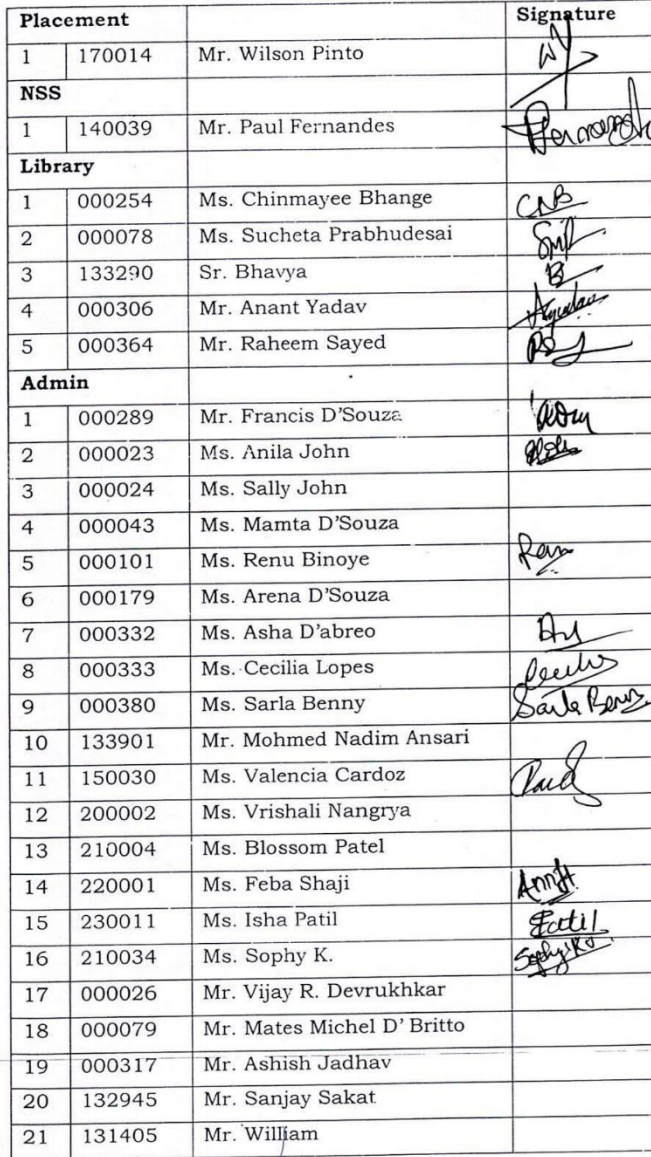 Placement Signature
1 170014 Mr. Wilson Pinto
NSS
1 140039 Mr. Paul Fernandes
Library
1 000254 Ms. Chinmayee Bhange CNB
2 000078 Ms. Sucheta Prabhudesai
3 133290 Sr. Bhavya B
4 000306 Mr. Anant Yadav Ayadav
5 000364 Mr. Raheem Sayed
Admin
1 000289 Mr. Francis D'Souza
2 000023 Ms. Anila John
3 000024 Ms. Sally John
4 000043 Ms. Mamta D'Souza
5 000101 Ms. Renu Binoye
6 000179 Ms. Arena D'Souza
7 000332 Ms. Asha D'abreo
8 000333 Ms. Cecilia Lopes
9 000380 Ms. Sarla Benny Sarla Benny
10 133901 Mr. Mohmed Nadim Ansari
11 150030 Ms. Valencia Cardoz
12 200002 Ms. Vrishali Nangrya
13 210004 Ms. Blossom Patel
14 220001 Ms. Feba Shaji
15 230011 Ms. Isha Patil
16 210034 Ms. Sophy K. Sophy K
17 000026 Mr. Vijay R. Devrukhkar
18 000079 Mr. Mates Michel D' Britto
19 000317 Mr. Ashish Jadhav
20 132945 Mr. Sanjay Sakat
21 131405 Mr. William